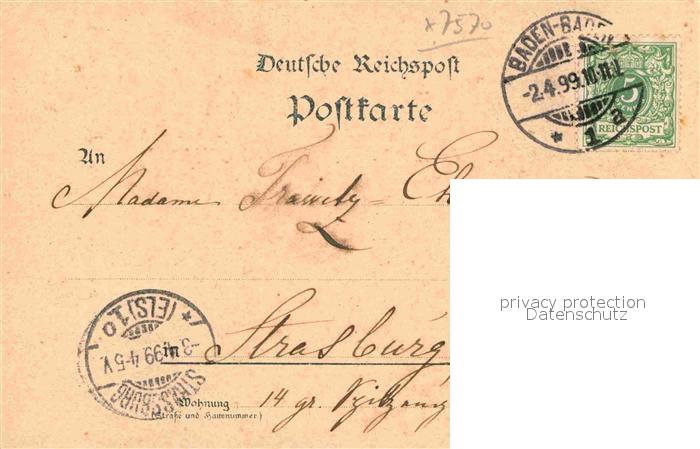 x7570
BADEN-BADEN
-2.4.99.10-11
1 a
5
REICHSPOST
Deutsche Reichspost
Postkarte
An
Madame
privacy protection
Datenschutz
Strasburg
* (ELS) 1.0
-3.4.99 4-5 V.
STRASSBURG
in
Wohnung
(Straße und Hausnummer.)
14 gr.